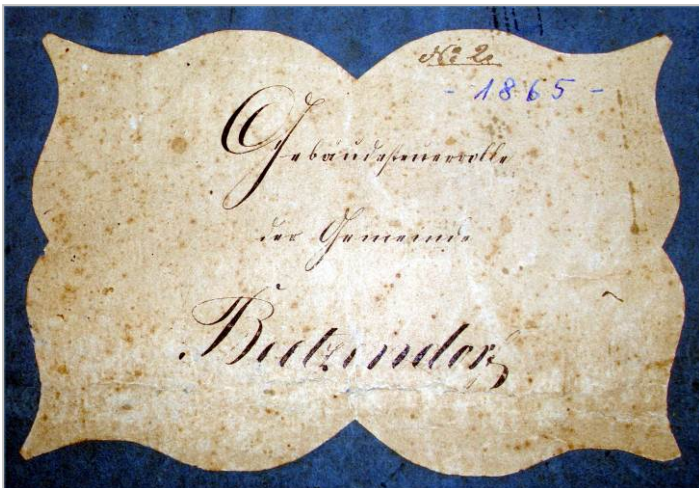 No 2.
- 1865 -
Gebäudesteuerrolle
der Gemeinde
Beetzendorf